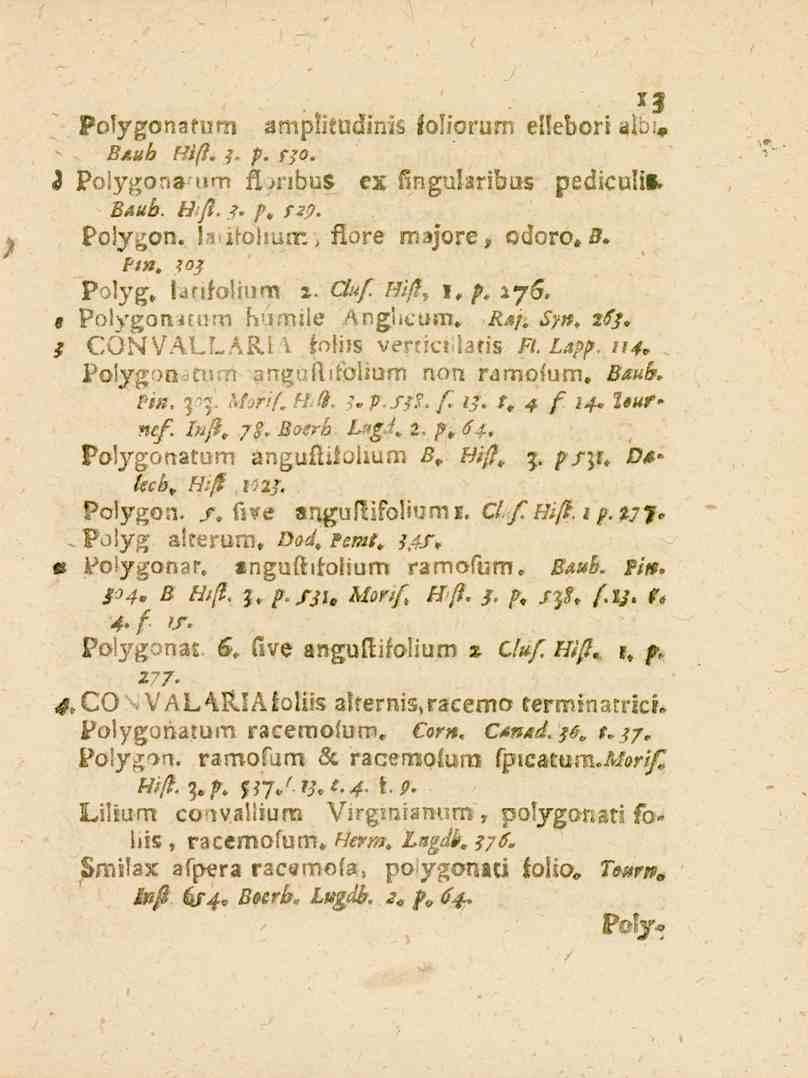 13
Polygonatum amplitudinis foliorum ellebori albi.
Baub Hist. 3. p. 530.
Polygonatum floribus ex singularibus pediculis.
Baub. Hist. 3. p. 529.
Polygon. latifolium, flore majore, odoro. B.
Pin. 303
Polyg. latifolium 2. Cluf. Hist, 1. p. 276.
e Polygonatum humile Anglicum. Raj. Syn. 263.
3 CONVALLARIA foliis verticillatis Fl. Lapp. 114.
Polygonatum angustifolium non ramosum. Baub.
Pin. 303. Moris. Hist. 3. p. 538. s. 13. t. 4 f 14. Tour-
nef. Inst. 78. Boerb Lugd. 2. p. 64.
Polygonatum angustifolium B. Hist. 3. p 531. Da-
lecb. Hist 1023.
Polygon. 5. sive angustifolium 1. Clus. Hist. 1 p. 277.
Polyg alterum. Dod. Pemt. 345.
Polygonat. angustifolium ramosum. Baub. Pin.
304. B Hist. 3. p. 531. Moris. Hist. 3. p. 538. s. 13. t.
4. f 15.
Polygonat. 6. sive angustifolium 2 Clus. Hist. 1. p.
277.
4. CONVALARIA foliis alternis, racemo terminatrici.
Polygonatum racemosum. Corn. Canad. 36. t. 37.
Polygon. ramosum & racemosum spicatum. Moris.
Hist. 3. p. 537. s. 13. t. 4. f. 9.
Lilium convallium Virginianum, polygonati fo-
liis, racemosum. Herm. Lugdb. 376.
Smilax aspera racemosa, polygonati folio. Tourn.
Inst 654. Boerb. Lugdb. 2. p. 64.
Poly-